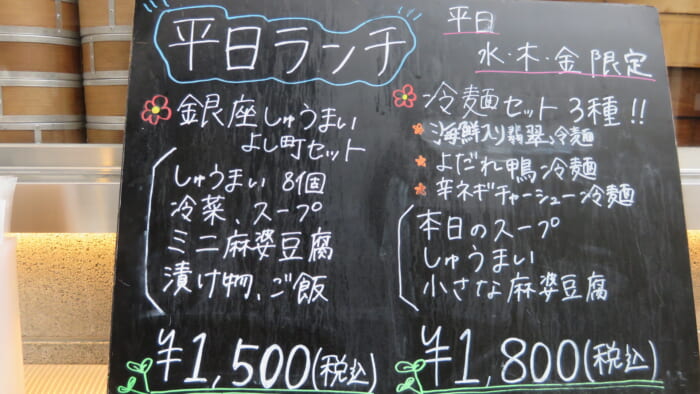 平日ランチ
銀座しゅうまい
よし町セット
しゅうまい 8個
冷菜、スープ
ミニ麻婆豆腐
漬け物、ご飯
¥1,500(税込)
平日
水・木・金限定
冷麺セット 3種!!
海鮮入り翡翠冷麺
よだれ鴨冷麺
辛ネギチャーシュー冷麺
本日のスープ
しゅうまい
小さな麻婆豆腐
¥1,800(税込)